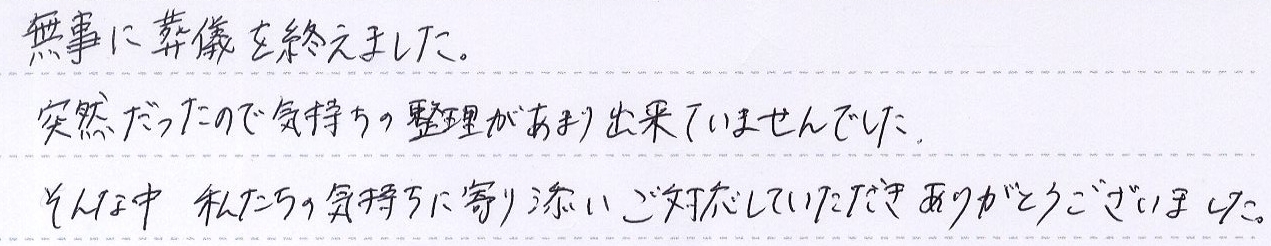 無事に葬儀を終えました。
突然だったので気持ちの整理があまり出来ていませんでした。
そんな中 私たちの気持ちに寄り添いご対応していただきありがとうございました。